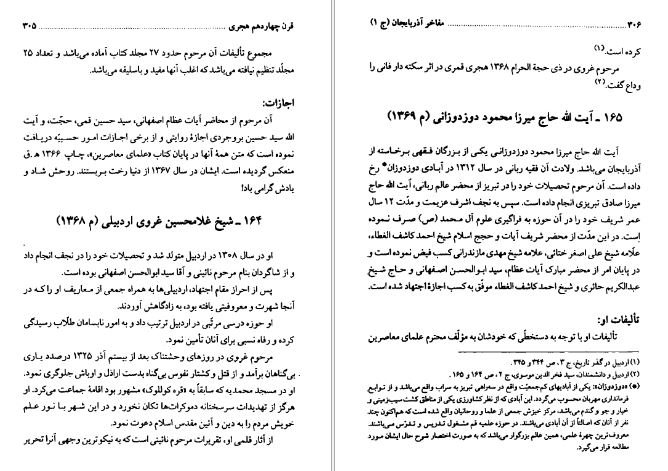 قرن چهاردهم هجری ... ۳۰۵
مجموع تألیفات آن مرحوم حدود ۲۷ مجلد کتاب آماده می‌باشد و تعداد ۲۵
مجلّد تنظیم نیافته می‌باشد که اغلب آنها مفید و باسلیقه می‌باشد.
اجازات:
آن مرحوم از محاضر آیات عظام اصفهانی، سید حسین قمی، حجّت، و آیت
الله سید حسین بروجردی اجازۀ روایتی و از برخی اجازات امور حسبیّه دریافت
نموده است که متن همۀ آنها در پایان کتاب «علمای معاصرین»، چاپ ۱۳۶۶ ه‍.ق
منعکس گردیده است. ایشان در سال ۱۳۶۷ از دنیا رخت بربستند. روحش شاد و
یادش گرامی باد!
۱۶۴ ـ شیخ غلامحسین غروی اردبیلی (م ۱۳۶۸)
او در سال ۱۳۰۸ در اردبیل متولد شد و تحصیلات خود را در نجف انجام داد
و از شاگردان بنام مرحوم نائینی و آقا سید ابوالحسن اصفهانی بوده است.
پس از احراز مقام اجتهاد، اردبیلی‌ها به همراه جمعی از معاریف او را که در
آنجا شهرت و معروفیتی یافته بود، به زادگاهش آوردند.
او حوزه درسی مرتّبی در اردبیل ترتیب داد و به امور نابسامان طلّاب رسیدگی
کرده و رفاه نسبی برای آنان تأمین نمود.
مرحوم غروی در روزهای وحشتناک بعد از بیستم آذر ۱۳۲۵ درصدد یاری
بی‌گناهان برآمد و از قتل و کشتار نفوس بی‌گناه بدست اراذل و اوباش جلوگیری نمود.
او در مسجد محمدیه که سابقاً به «قره کوللوک» مشهور بود اقامۀ جماعت می‌کرد.
هرگز از تهدیدات سرسختانه دموکرات‌ها تکان نخورد و در این شهر با نور علم
خویش مردم را به دین و آئین مقدس اسلام دعوت نمود.
از آثار قلمی او، تقریرات مرحوم نائینی است که به نیکوترین وجهی آنرا تحریر
۳۰۶ ... مفاخر آذربایجان (ج ۱)
کرده است.(۱)
مرحوم غروی در ذی حجة الحرام ۱۳۶۸ هجری قمری در اثر سکته دار فانی را
وداع گفت.(۲)
۱۶۵ ـ آیت الله حاج میرزا محمود دوزدوزانی (م ۱۳۶۹)
آیت الله حاج میرزا محمود دوزدوزانی یکی از بزرگان فقهی برخاسته از
آذربایجان می‌باشد. ولادت آن فقیه ربانی در سال ۱۳۱۲ در آبادی دوزدوزان* رخ
داده است. آن مرحوم تحصیلات خود را در تبریز از محضر عالم ربانی، آیت الله حاج
میرزا صادق تبریزی انجام داده است. پس به نجف اشرف عزیمت و مدّت ۱۲ سال
عمر شریف خود را در آن حوزه به فراگیری علوم آل محمد (ص) صرف نموده
است. در این مدّت از محضر شریف آیات و حجج اسلام شیخ احمد کاشف الغطاء،
علّامه شیخ علی اصغر ختائی، علامه شیخ مهدی مازندرانی کسب فیض نموده است و
در پایان امر از محضر مبارک آیات عظام، سید ابوالحسن اصفهانی و حاج شیخ
عبدالکریم حائری و شیخ احمد کاشف الغطاء موفّق به کسب اجازۀ اجتهاد شده است.
تألیفات او:
تألیفات او با توجه به دستخطّی که خودشان به مؤلّف محترم علمای معاصرین
(۱) اردبیل در گذر تاریخ، ج ۳، ص ۳۴۴ و ۳۴۵.
(۲) اردبیل و دانشمندان، سید فخر الدین موسوی، ج ۲، ص ۱۶۴ و ۱۶۵.
(*) «دوزدوزان»: یکی از آبادیهای کم‌جمعیّت واقع در سه‌راهی تبریز به سراب واقع می‌باشد و از توابع
فرمانداری مهربان محسوب می‌گردد. این آبادی که از نظر کشاورزی یکی از مناطق کشت سیب‌زمینی و
خیار و جو و گندم می‌باشد، مرکز خیزش جمعی از علما و روحانیان واقع شده است که هم‌اکنون چند
نفر از آنان که اصالتاً از آن آبادی می‌باشند، در حوزه علمیه قم مشغول تدریس و تدرّس هستند.
معروف‌ترین چهرۀ علمی، همین عالم بزرگوار می‌باشد که به صورت اختصار شرح حال ایشان مورد
مطالعه قرار می‌گیرد.